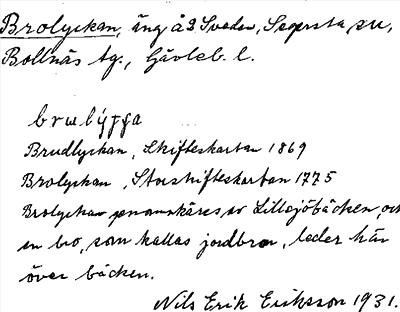 Brolyckan, äng å 2 Sveden, Segersta sn,
Bollnäs tg., Gävleb. l.
brulýffa
Brudlyckan, Skifteskartan 1869
Brolyckan, Storskifteskartan 1775
Brolyckan genomskäres av Lillsjöbäcken, och
en bro, som kallas jordbron, leder här
över bäcken.
Nils Erik Eriksson 1931.